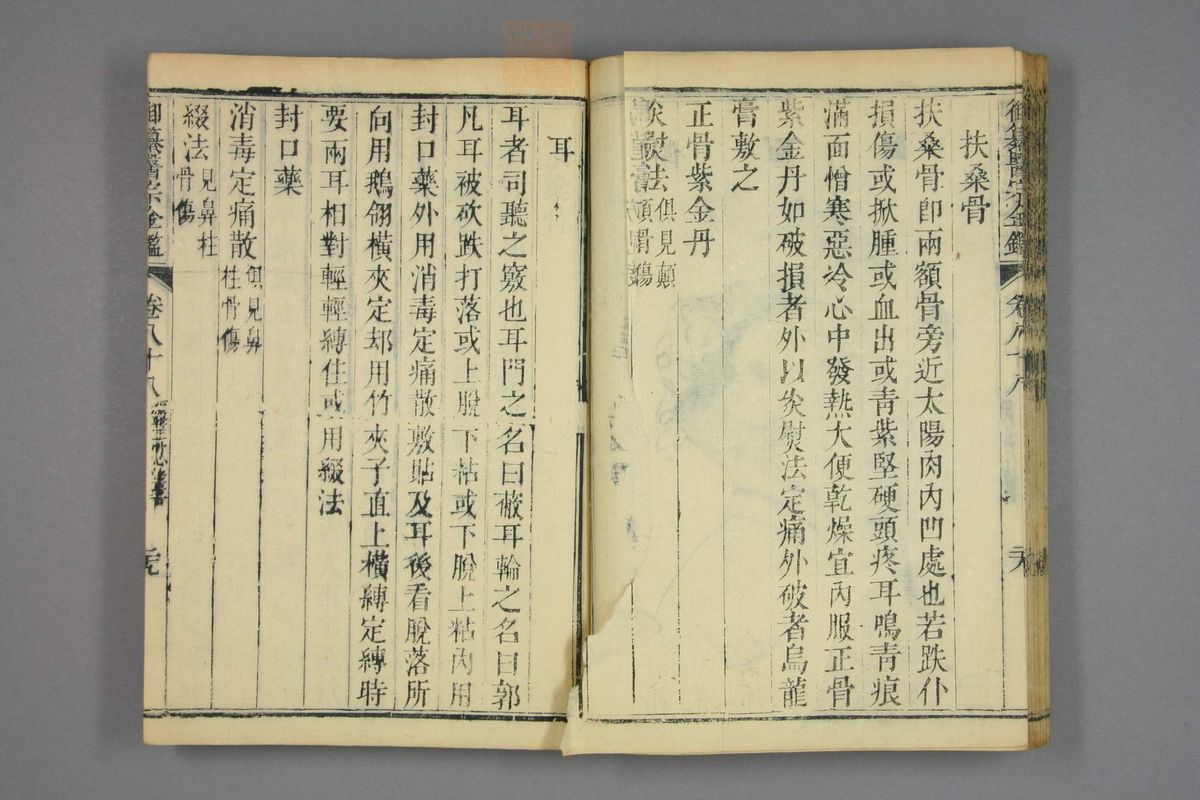 御纂醫宗金鑑 卷八十八
扶桑骨
扶桑骨卽兩額骨旁近太陽肉內凹處也若跌仆
損傷或掀腫或血出或青紫堅硬頭疼耳鳴青痕
滿面憎寒惡冷心中發熱大便乾燥宜內服正骨
紫金丹如破損者外以灸熨法定痛外破者烏龍
膏敷之
正骨紫金丹
灸熨法俱見顛
頂骨傷
耳
耳者司聽之竅也耳門之名曰蔽耳輪之名曰郭
凡耳被砍跌打落或上脫下粘或下脫上粘內用
封口藥外用消毒定痛散敷貼及耳後看脫落所
向用鵝翎橫夾定却用竹夾子直上橫縛定縛時
要兩耳相對輕輕縛住或用綴法
封口藥
消毒定痛散俱見鼻
柱骨傷
綴法見鼻柱
骨傷
御纂醫宗金鑑 卷八十八